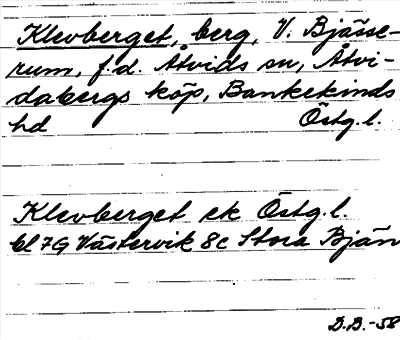 Klevberget, berg, V. Bjässe-
rum, f.d. Åtvids sn, Åtvi-
dabergs köp, Bankekinds
hd Östg.l.
Klevberget ek Östg.l.
bl 7G Västervik 8c Stora Bjän
D.B.-58